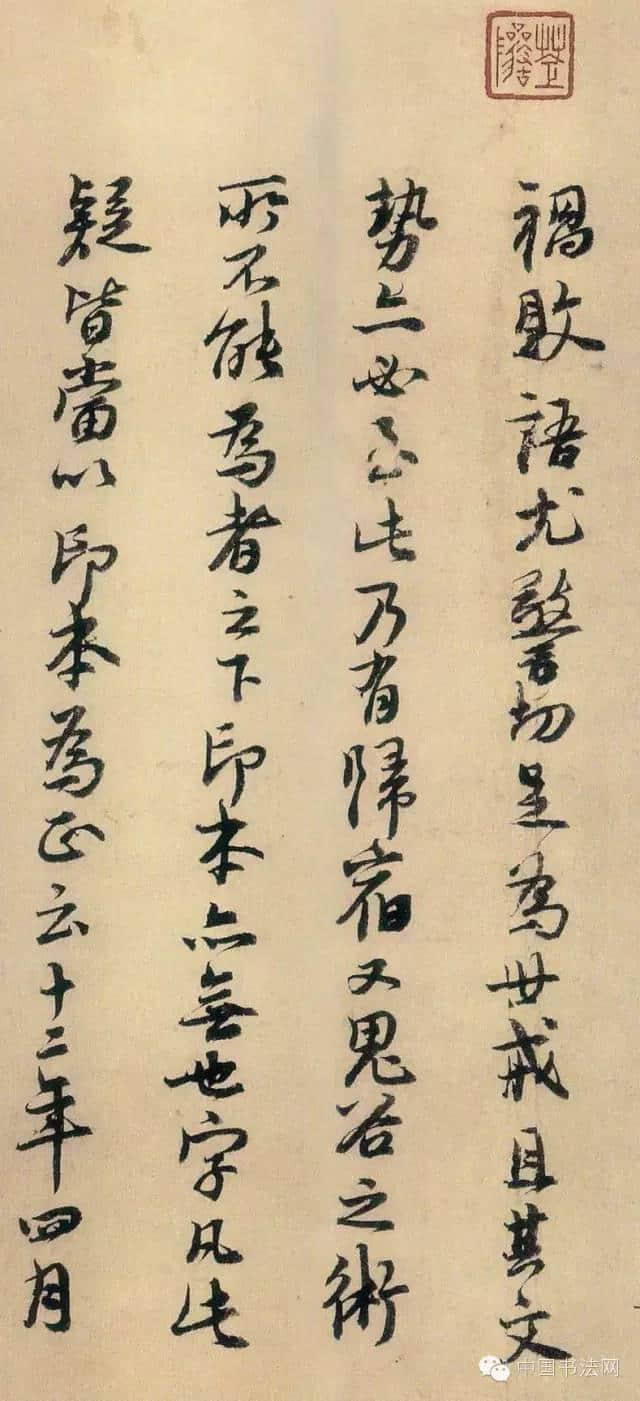 禍敗語尤警切足為世戒且其文
勢亦必至此乃有歸宿又鬼谷之術
所不能為者之下印本亦無也字凡此
疑皆當以印本為正云十二年四月
中国书法网